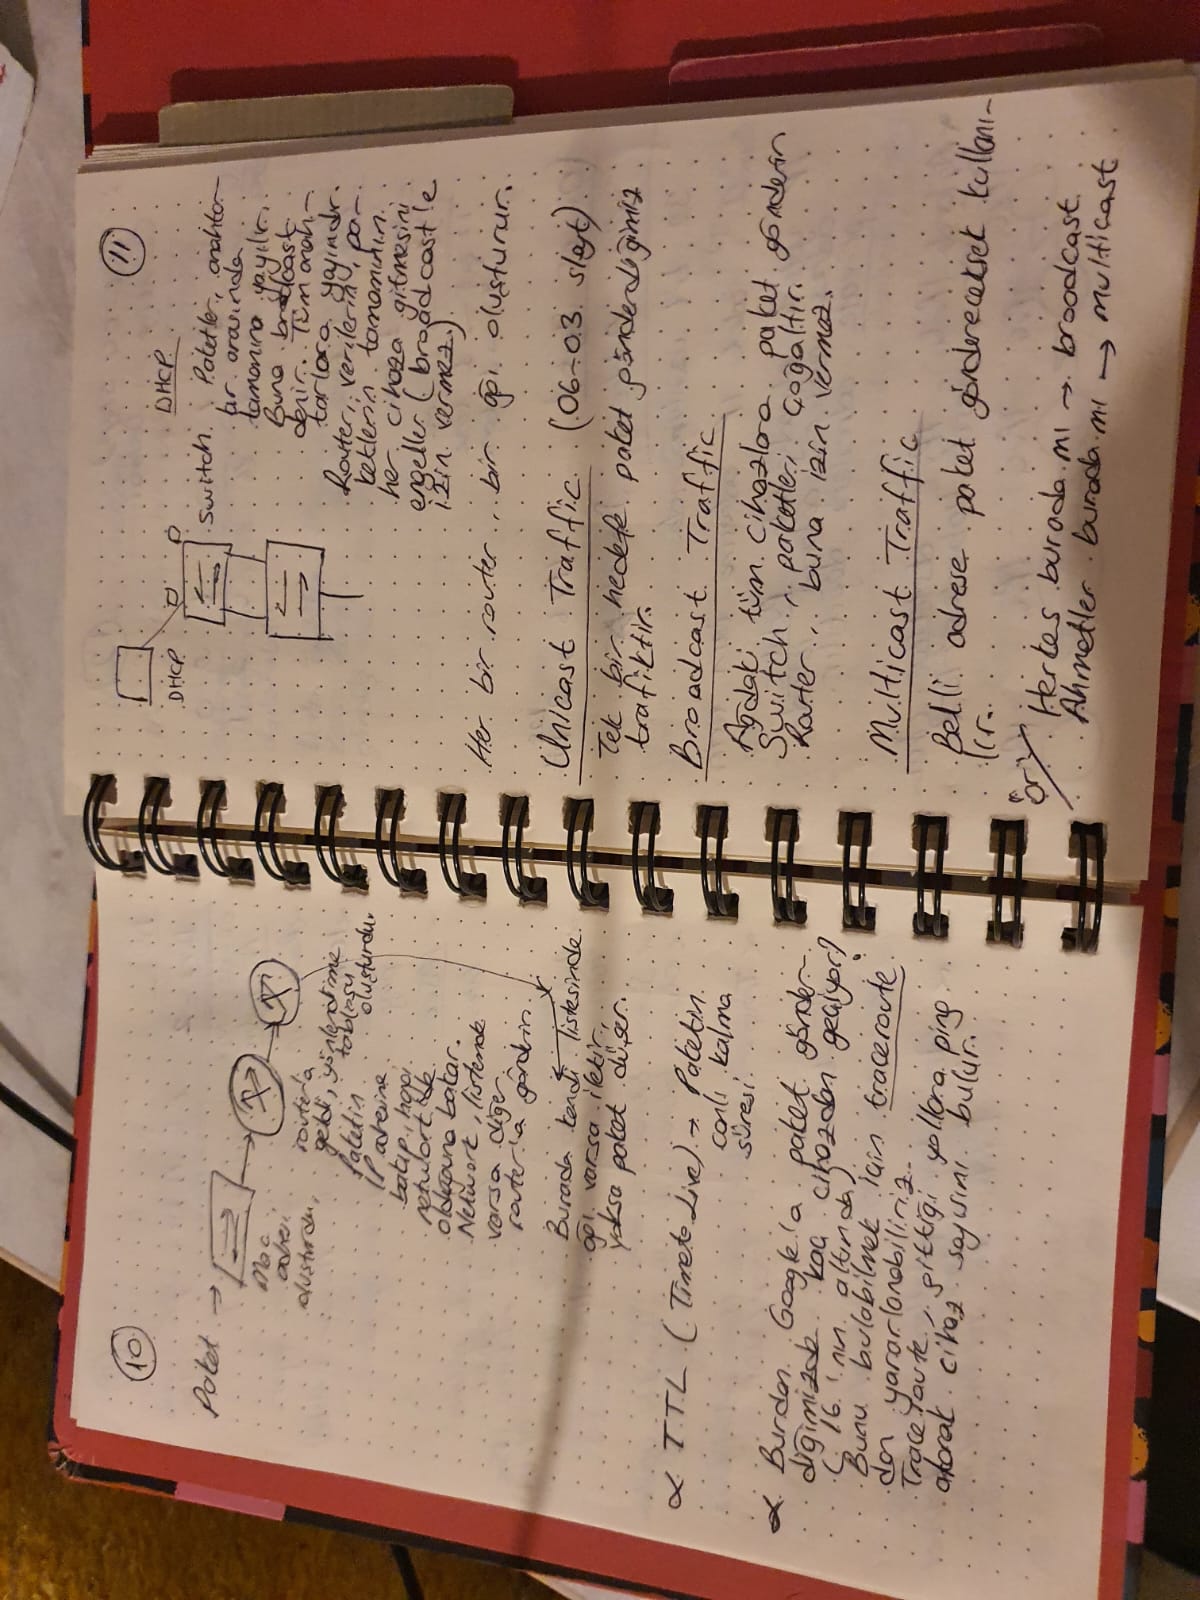 10
Paket →
Mac
adresi
oluşturdu.
router'a
geldi, yönlendirme
tablosu
oluşturdu.
Paketin
IP adresine
bakıp, hangi
network'de
olduğuna bakar.
Network, listemde
varsa diğer
router'a gönderin.
Burada kendi listesinde
ağı varsa iletir,
yoksa paket düşer.
TTL (Time to Live) → Paketin
canlı kalma
süresi.
Burdan Google'a paket gönder-
diğimizde kaç cihazdan geçiyor?
(16'nın altında)
Bunu bulabilmek için traceroute
dan yararlanabiliriz.
Traceroute, gittiği yollara ping
atarak cihaz sayısını bulur.
11
DHCP
switch
DHCP
Paketler, anahta-
lar arasında
tamamına yayılır.
Buna broadcast
denir. Tüm anah-
tarlara yayındır.
Router, verilerin, pa-
ketlerin tamamının
her cihaza gitmesini
engeller (broadcast'e
izin vermez.)
Her bir router, bir ağı oluşturur.
Unicast Traffic (06-03 slayt)
Tek bir hedefe paket gönderdiğimiz
trafiktir.
Broadcast Traffic
Ağdaki tüm cihazlara paket gönderin
Switch, paketleri çoğaltır.
Router, buna izin vermez.
Multicast Traffic
Belli adrese paket göndereceksek kullanı-
lır.
ör/
Herkes burada mı → broadcast
Ahmetler burada mı → multicast